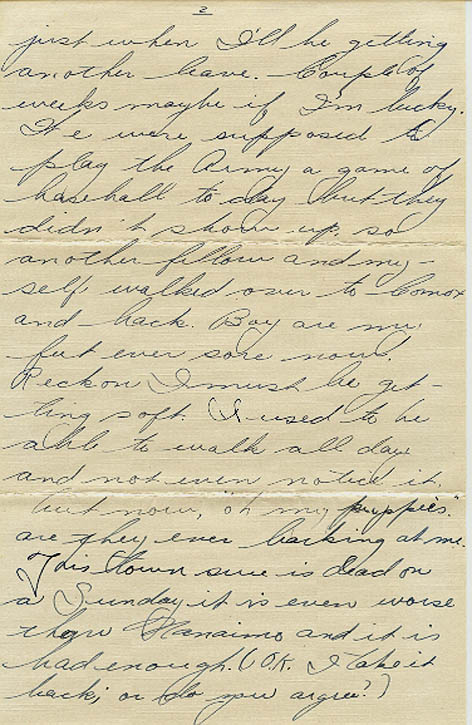 2
just when I'll be getting
another leave. Couple of
weeks maybe if I'm lucky.
We were supposed to
play the Army a game of
baseball to day but they
didn't show up, so
another fellow and my-
self walked over to Comox
and back. Boy are my
feet ever sore now.
Reckon I must be get-
ting soft. I used to be
able to walk all day
and not even notice it.
but now, "oh my puppies."
are they ever barking at me.
This town sure is dead on
a Sunday it is even worse
than Nanaimo and it is
bad enough. (O.K. I take it
back; or do you argue?)